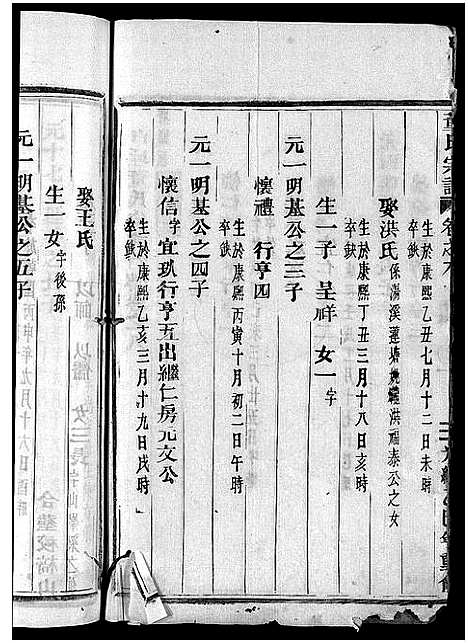 氏宗譜
生於康熙乙亥七月十二日未時
卒缺
娶洪氏係湯溪蓮塘
洪福泰公之女
生於康熙丁丑三月十八日亥時
卒缺
生一子呈祥一女字
元一明基公之三子
懷禮 行亨四
生於康熙丙寅十月初二日午時
卒缺
元一明基公之四子
懷信字宜玖行亨五出繼仁房元文公
生於康熙乙亥三月十九日戌時
卒缺
娶王氏
生一女字後孫
元一明基公之五子